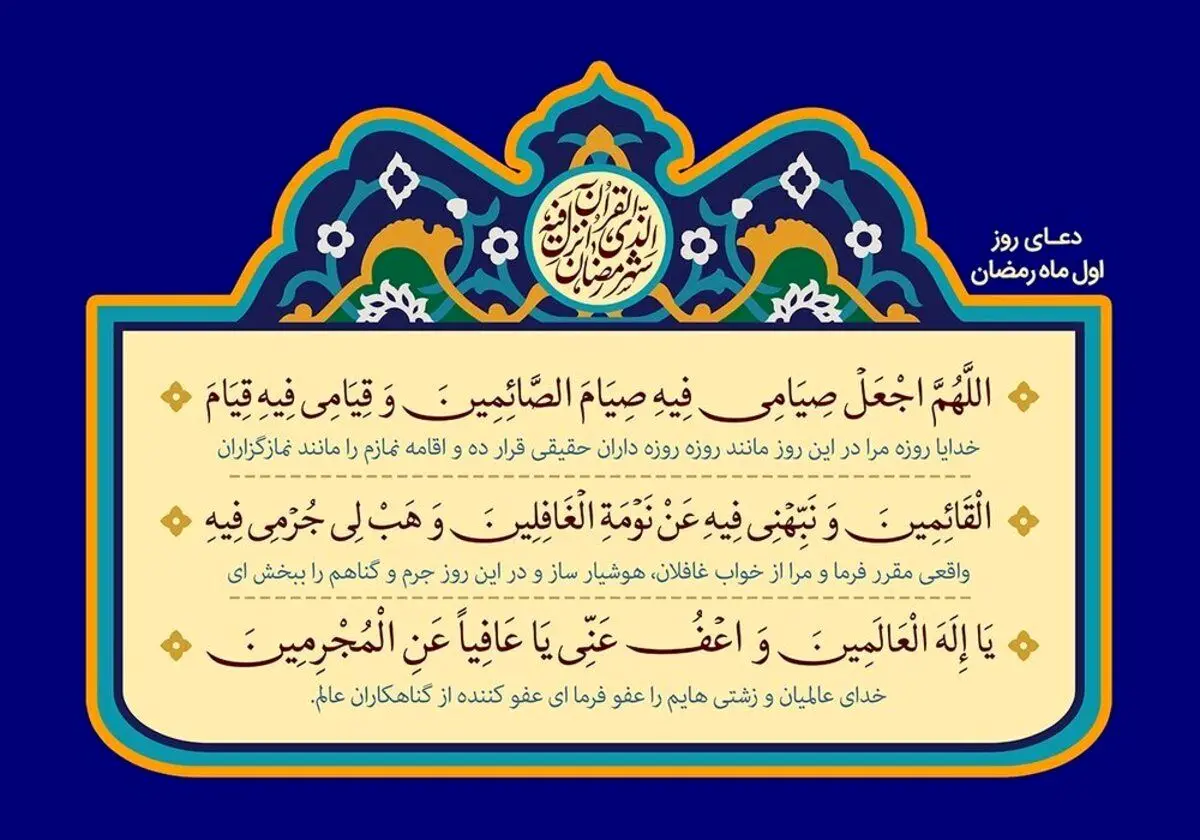 شَهْرُ رَمَضَانَ
الَّذِی أُنْزِلَ فِیهِ
الْقُرْآن
دعای روز
اول ماه رمضان
اللَّهُمَّ اجْعَلْ صِيَامِی فِيهِ صِيَامَ الصَّائِمِينَ وَ قِيَامِی فِيهِ قِيَامَ
خدایا روزه مرا در این روز مانند روزه روزه داران حقیقی قرار ده و اقامه نمازم را مانند نمازگزاران
الْقَائِمِينَ وَ نَبِّهْنِی فِيهِ عَنْ نَوْمَةِ الْغَافِلِينَ وَ هَبْ لِی جُرْمِی فِيهِ
واقعی مقرر فرما و مرا از خواب غافلان، هوشیار ساز و در این روز جرم و گناهم را ببخش ای
يَا إِلَهَ الْعَالَمِينَ وَ اعْفُ عَنِّی يَا عَافِياً عَنِ الْمُجْرِمِينَ
خدای عالمیان و زشتی هایم را عفو فرما ای عفو کننده از گناهکاران عالم.